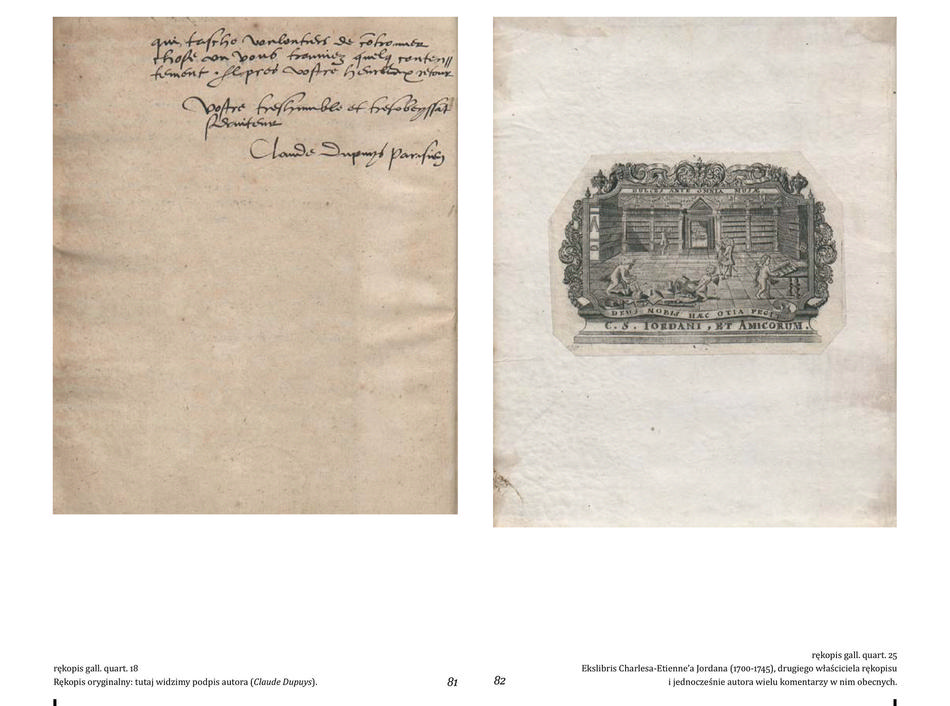 qui tascho voulontiers de cōtrouuer
chose ou vous trouuiez quelq conten//
tement . Il pres vostre heureux retour
Vostre treshumble et tresobeyssāt
Seruiteur
Claude Dupuys Parisien
DULCES ANTE OMNIA MUSÆ
DEUS NOBIS HÆC OTIA FECIT
C. S. IORDANI, ET AMICORUM.
rękopis gall. quart. 18
Rękopis oryginalny: tutaj widzimy podpis autora (Claude Dupuys).
81
82
rękopis gall. quart. 25
Ekslibris Charlesa-Etienne’a Jordana (1700-1745), drugiego właściciela rękopisu
i jednocześnie autora wielu komentarzy w nim obecnych.